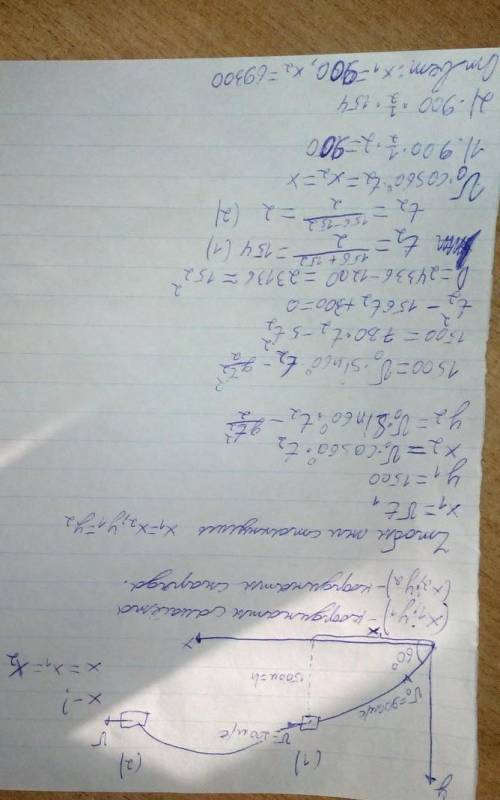 y
(1)
(2)
V₀=900м/с
V=200м/с
V
1500м=h
60°
x₁
x
x-?
x=x₁=x₂
(x₁;y₁)-координаты самолёта
(x₂;y₂)-координаты снаряда.
Чтобы они столкнулись x₁=x₂; y₁=y₂
x₁=Vt₁
y₁=1500
x₂=V₀·cos60°·t₂
y₂=V₀·sin60°·t₂-gt₂²/2
1500=V₀·sin60°·t₂-gt₂²/2
1500=780·t₂-5t₂²
t₂²-156t₂+300=0
D=24336-1200=23136≈152²
t₂=(156+152)/2=154 (1)
t₂=(156-152)/2=2 (2)
V₀·cos60°·t₂=x₂=x
1).900·½·2=900
2).900·½·154
Ответ: x₁=900, x₂=69300